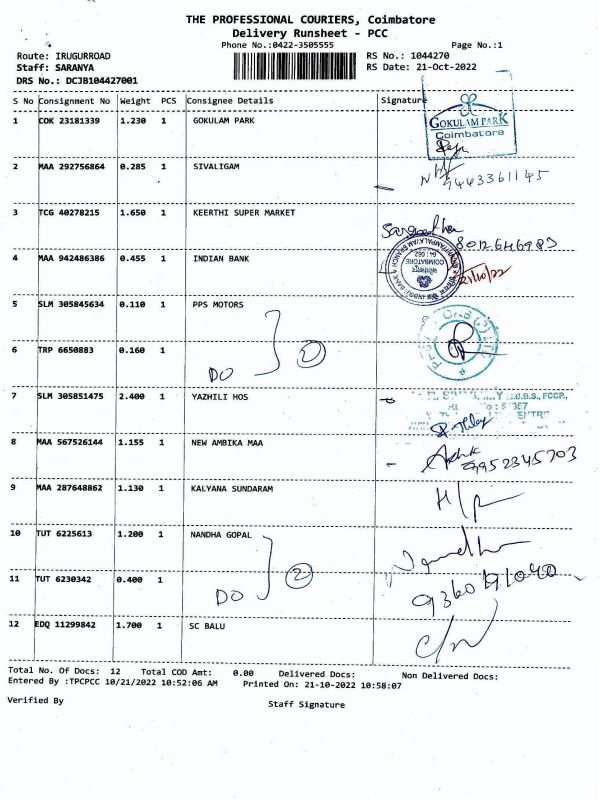 THE PROFESSIONAL COURIERS, Coimbatore
Delivery Runsheet - PCC
Phone No.:0422-3505555 Page No.:1
Route: IRUGURROAD RS No.: 1044270
Staff: SARANYA RS Date: 21-Oct-2022
DRS No.: DCJB104427001
S No Consignment No Weight PCS Consignee Details Signature
1 COK 23181339 1.230 1 GOKULAM PARK
GOKULAM PARK
Coimbatore
2 MAA 292756864 0.285 1 SIVALIGAM
9443361145
3 TCG 40278215 1.650 1 KEERTHI SUPER MARKET
8012646983
4 MAA 942486386 0.455 1 INDIAN BANK
COIMBATORE
21/10/22
5 SLM 305845634 0.110 1 PPS MOTORS
6 TRP 6650883 0.160 1
DO 2
7 SLM 305851475 2.400 1 YAZHILI HOS
8 MAA 567526144 1.155 1 NEW AMBIKA MAA
9952345703
9 MAA 287648862 1.130 1 KALYANA SUNDARAM
10 TUT 6225613 1.200 1 NANDHA GOPAL
11 TUT 6230342 0.400 1
DO 2
12 EDQ 11299842 1.700 1 SC BALU
Total No. Of Docs: 12 Total COD Amt: 0.00 Delivered Docs: Non Delivered Docs:
Entered By :TPCPCC 10/21/2022 10:52:06 AM Printed On: 21-10-2022 10:58:07
Verified By Staff Signature